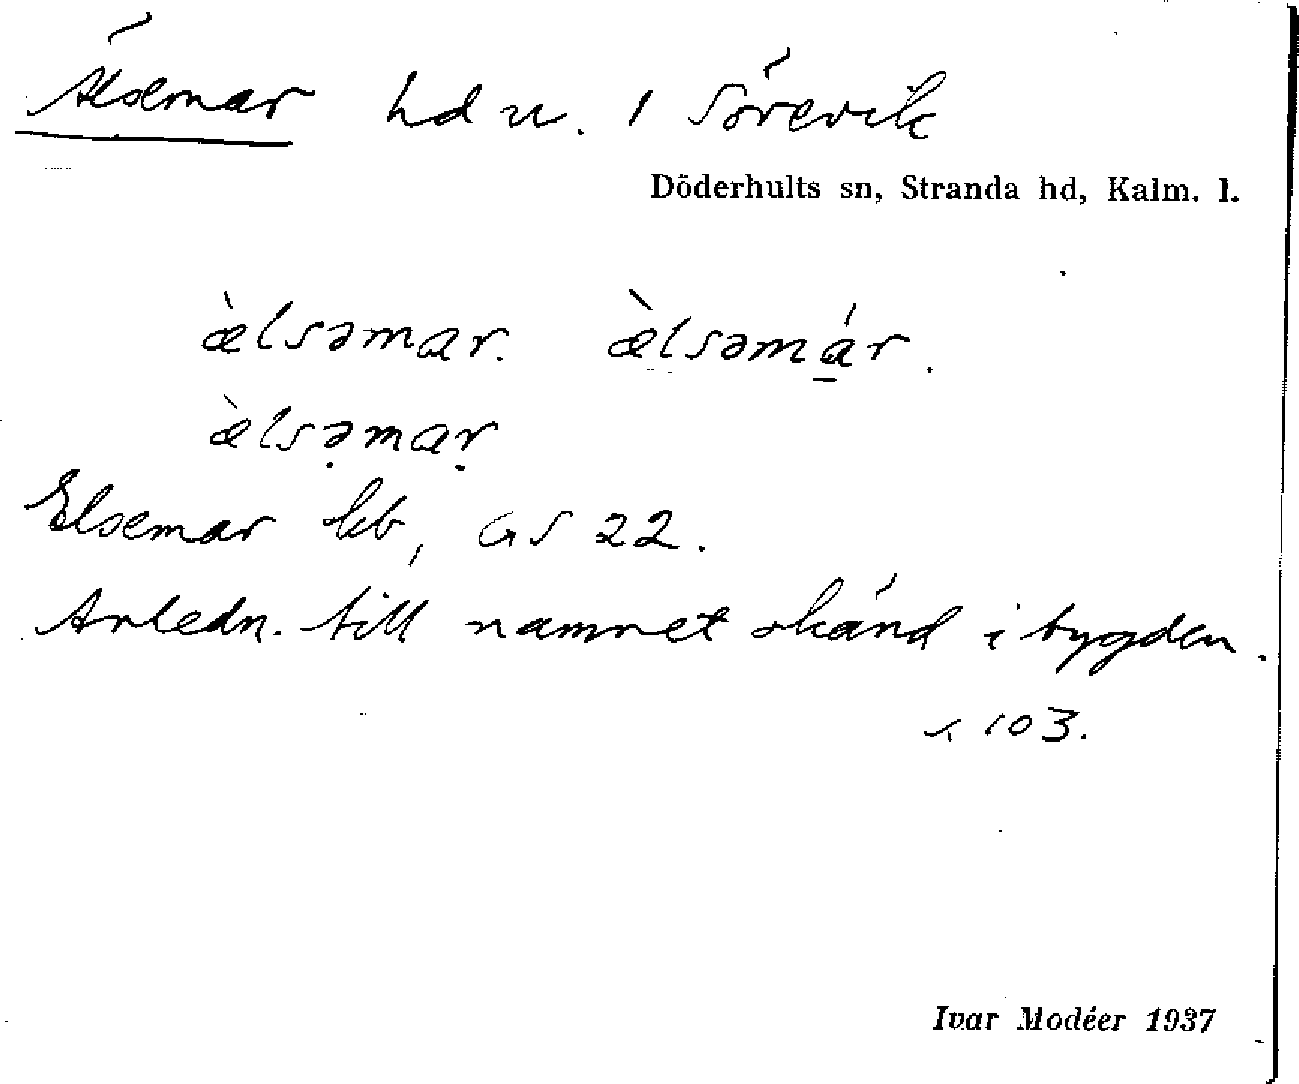 Älsemar hd u. 1 Sörevik
Döderhults sn, Stranda hd, Kalm. l.
æ̀lsəmar. æ̀lsəmá̱r.
æ̀lsə̣maṛ
Elsemar kb, GS 22.
Anledn. till namnet okänd i bygden.
103.
Ivar Modéer 1937